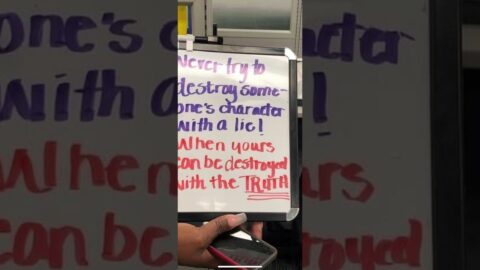 Never try to
destroy some-
one's character
with a lie!
When yours
can be destroyed
with the TRUTH